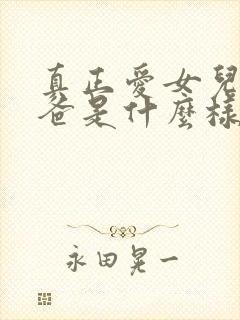 真正愛女兒
爸是什麼樣
永田晃一